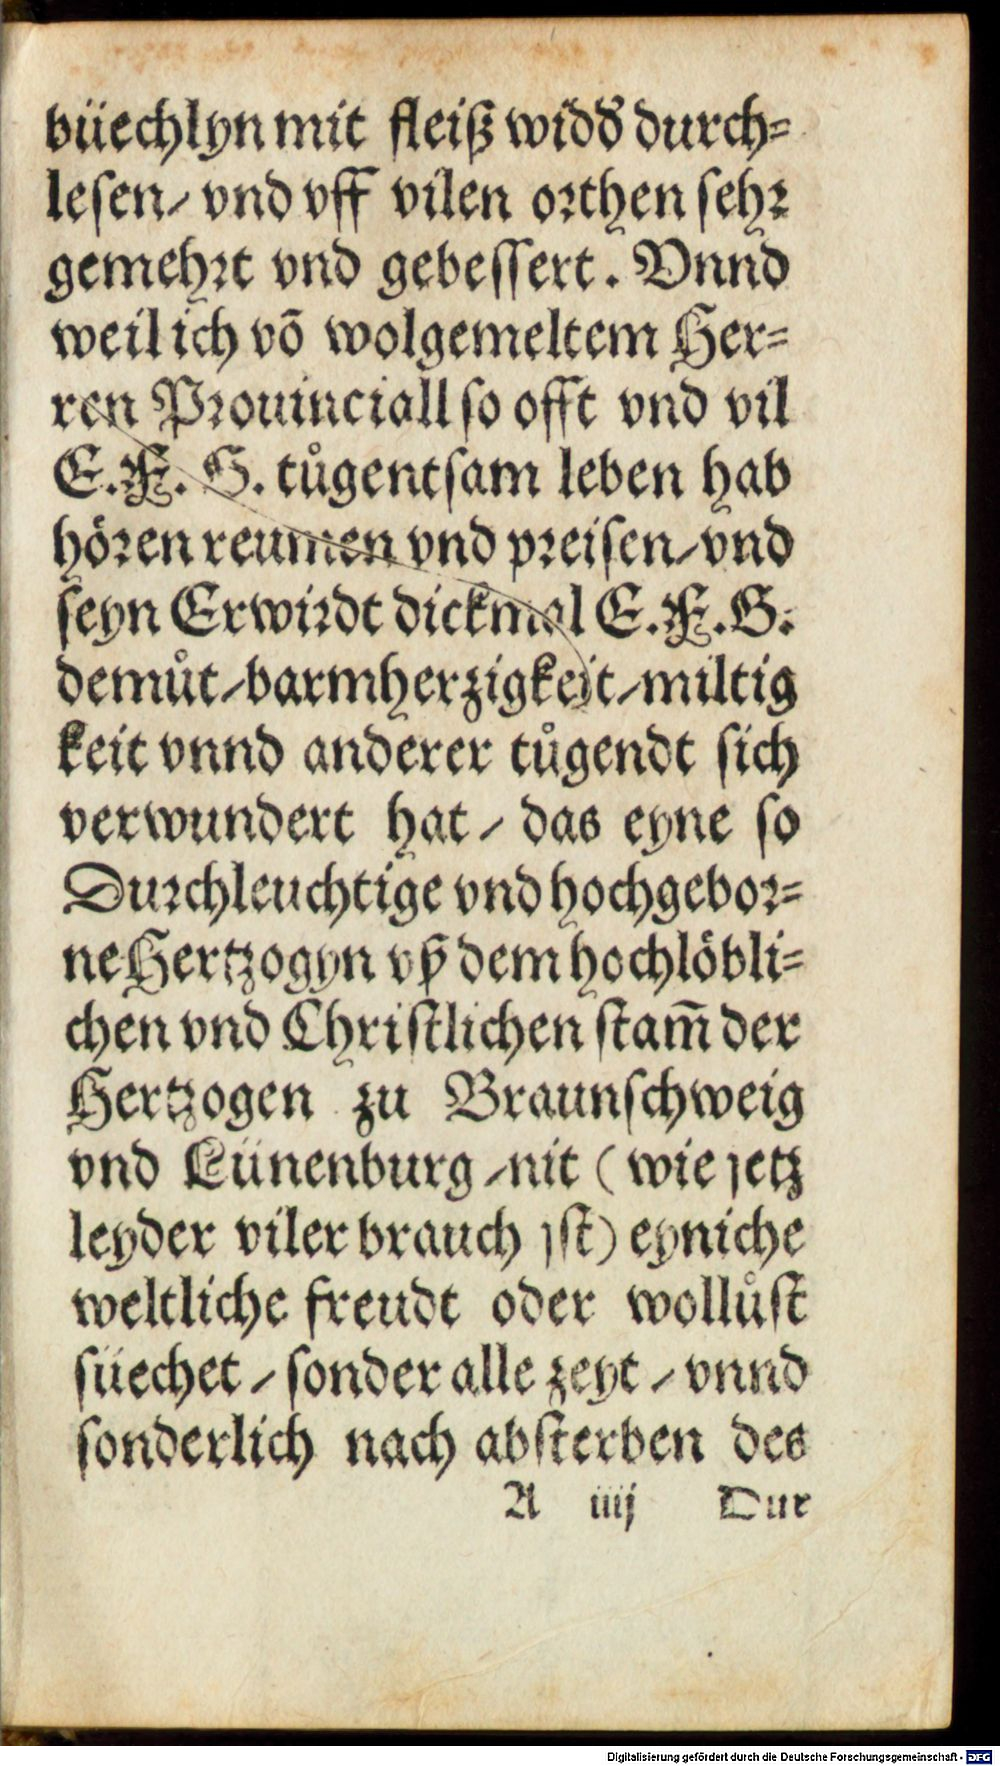 büechlyn mit fleiß widd̕ durch-
lesen/ vnd vff vilen orthen sehr
gemehrt vnd gebessert. Vnnd
weil ich võ wolgemeltem Her-
ren Prouinciall so offt vnd vil
E.F.G. tůgentsam leben hab
hören reumen vnd preisen/ vnd
seyn Erwirdt dickmal E.F.G.
demůt/ barmherzigkeit/ miltig
keit vnnd anderer tůgendt sich
verwundert hat/ das eyne so
Durchleuchtige vnd hochgebor-
ne Hertzogyn vß dem hochlöbli-
chen vnd Christlichen stam̃ der
Hertzogen zu Braunschweig
vnd Lünenburg/ nit (wie jetz
leyder viler brauch jst) eyniche
weltliche freudt oder wollůst
süechet/ sonder alle zeyt/ vnnd
sonderlich nach absterben des
A iiij Dur
Digitalisierung gefördert durch die Deutsche Forschungsgemeinschaft - DFG